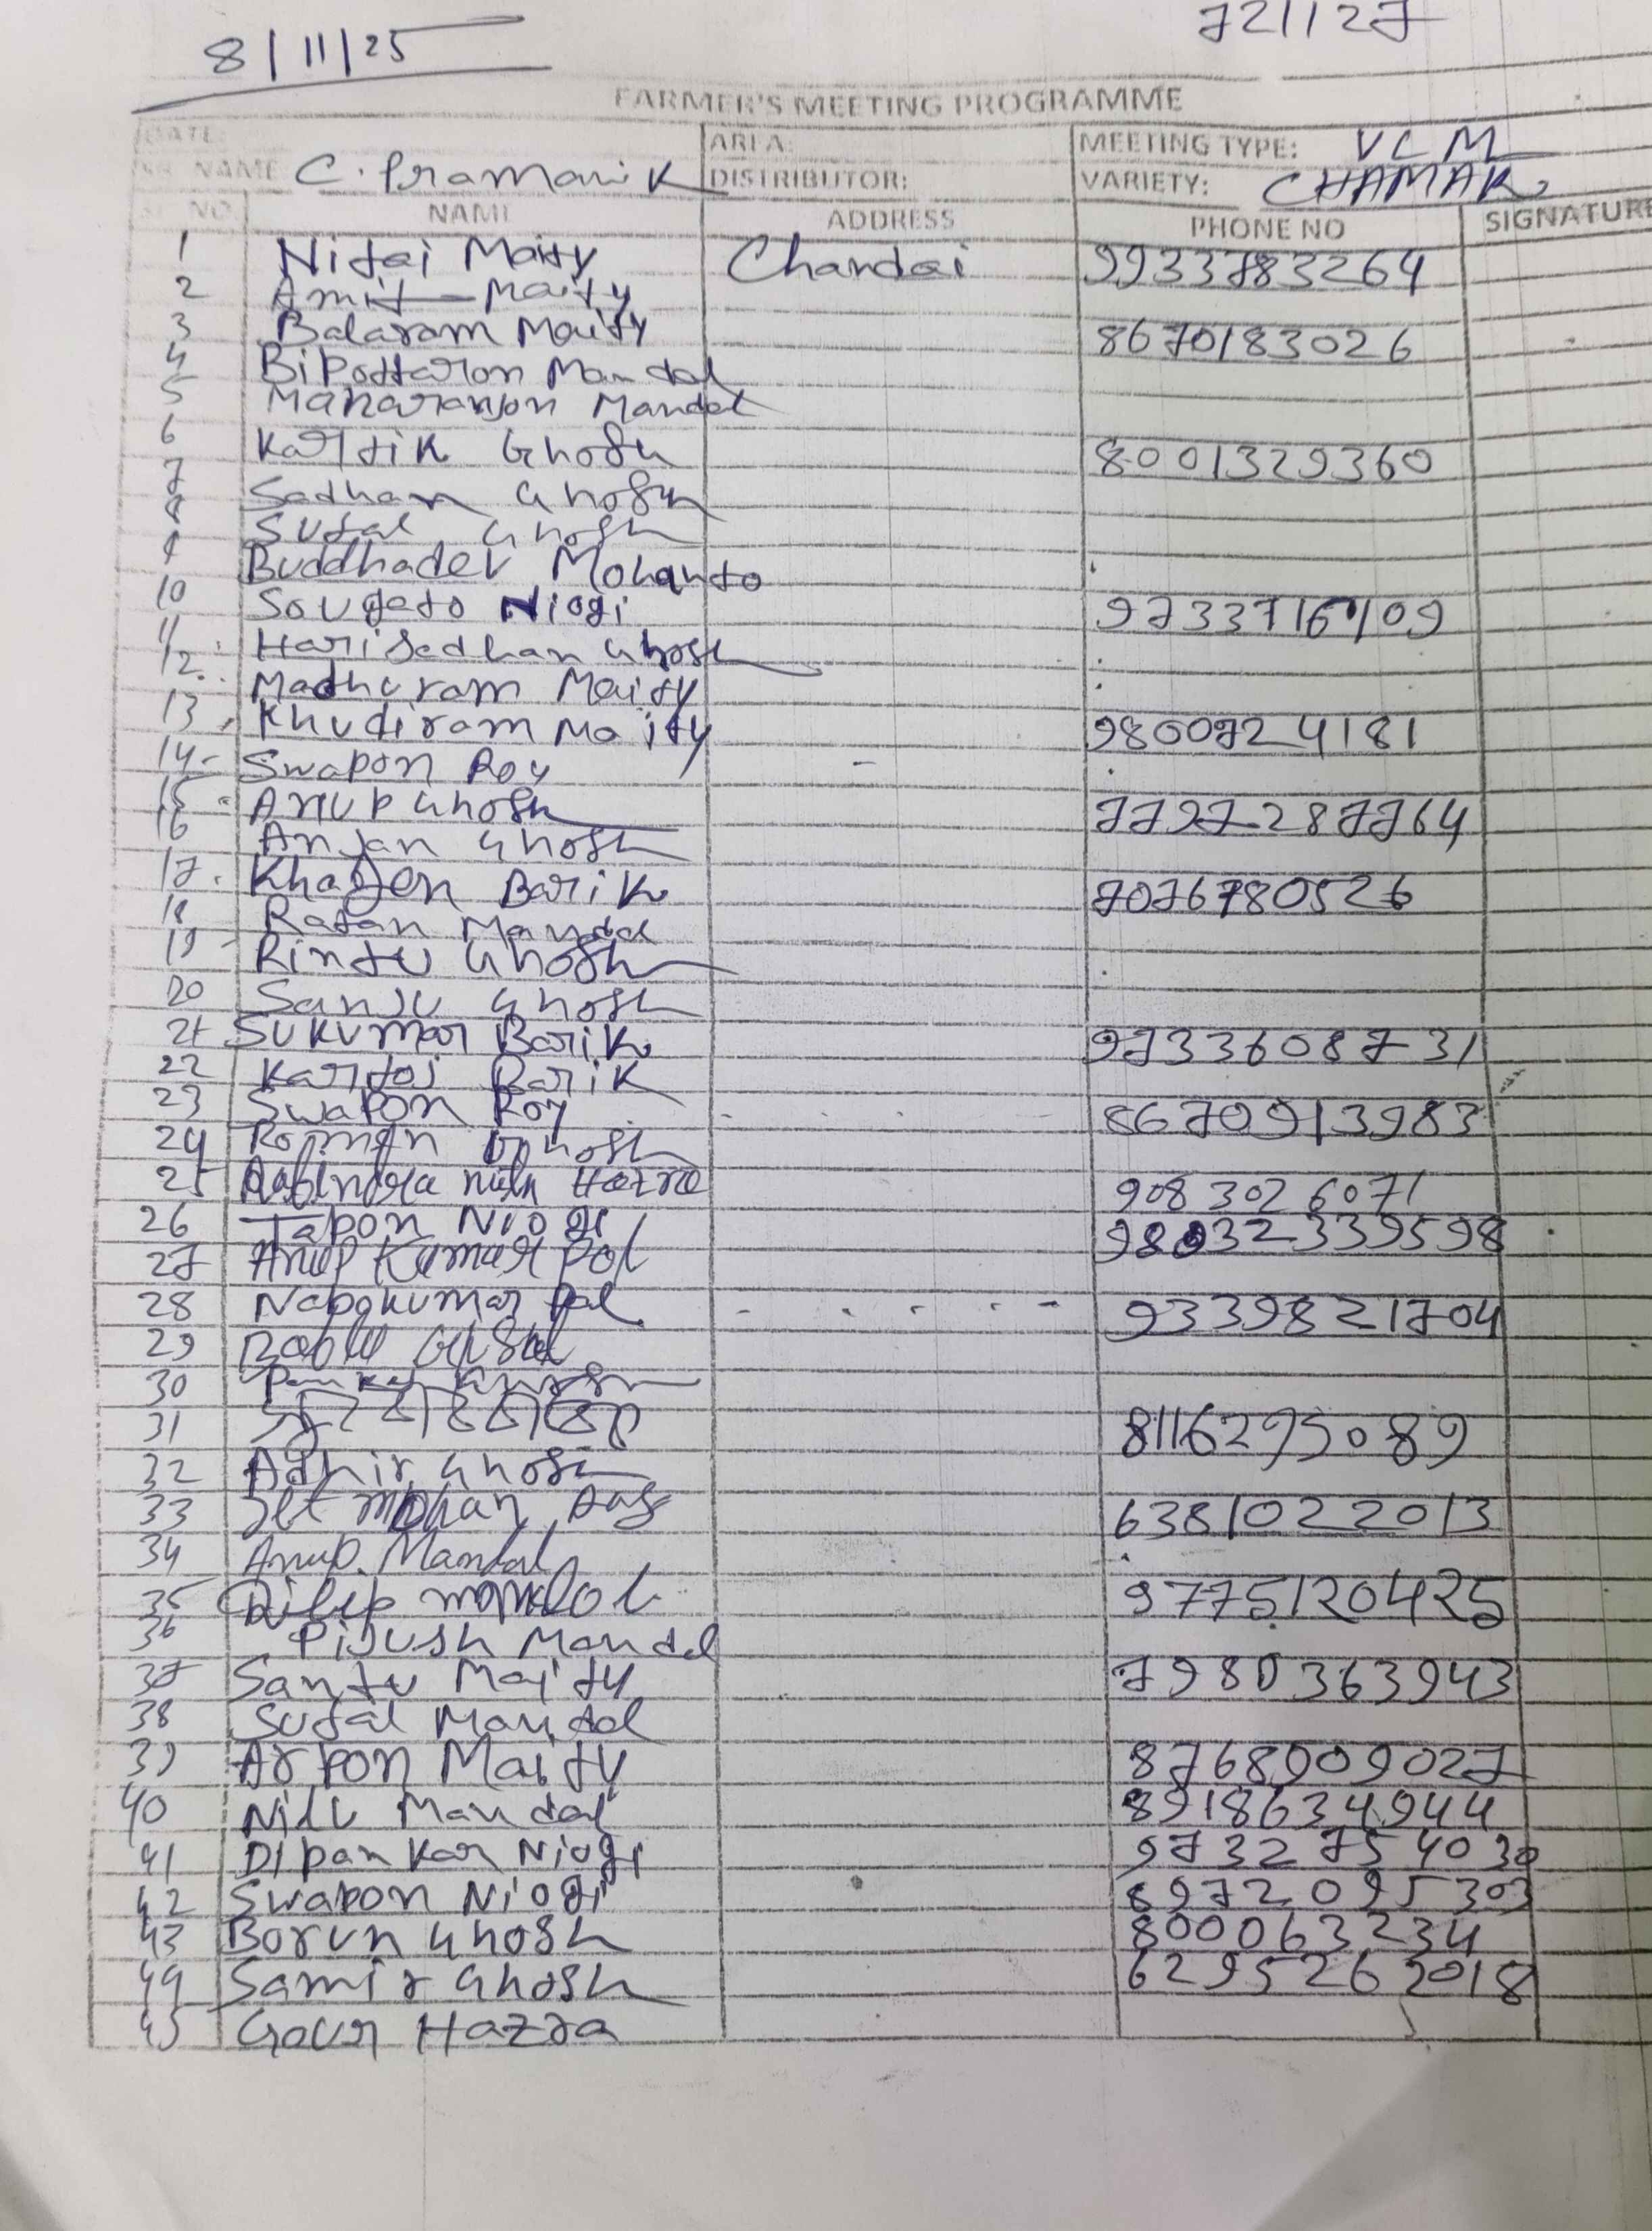 8/11/25
721127
FARMER'S MEETING PROGRAMME
DATE: AREA: MEETING TYPE: VCM
NAME C. Pramanik DISTRIBUTOR: VARIETY: CHAMAK
SL NO. NAME ADDRESS PHONE NO SIGNATURE
1 Nitai Maity Chandai 9933783264
2 Amit Maity
3 Balaram Maity 8670183026
4 Bipottaron Mandal
5 Manaranjon Mandal
6 Kartik Ghosh 8001329360
7 Sadhan Ghosh
8 Sutal Ghosh
9 Buddhadev Mohanto
10 Sougato Niogi 9733716109
11 Harisadhan Ghosh
12 Madhuram Maity
13 Khudiram Maity 9800724181
14 Swapon Roy
15 Arup Ghosh 7797287764
16 Anjan Ghosh
17 Khagen Barik 7076780526
18 Ratan Mandal
19 Rintu Ghosh
20 Sanju Ghosh
21 Sukumar Barik 9733608731
22 Kartoi Barik
23 Swapon Roy 8670913983
24 Ghosh
25 Rabindra nath Hazra 9083026071
26 Tapon Niogi 980932339598
27 Anup Kumar Pol
28 Nabokumar Pal 9339821704
29 Bablu
30 Pankaj Ghosh
31 8116295089
32 Adhir Ghosh
33 mohan Das 6381022013
34 Anup. Mandal
35 Dilip mondol 9775120425
36 Pijush Mandal
37 Santu Maity 7980363943
38 Sutal Mandal
39 Arpon Maity 8768909027
40 Nilu Mandal 8918634944
41 Dipankar Niogi 9732754030
42 Swapon Niogi 8972095303
43 Borun Ghosh 8000632234
44 Samir Ghosh 6295262018
45 Gour Hazra